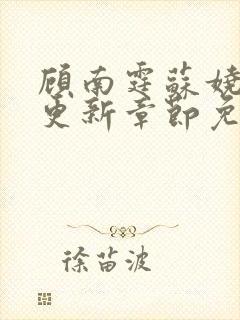 顾南霆苏娆
更新章节免
徐苗波